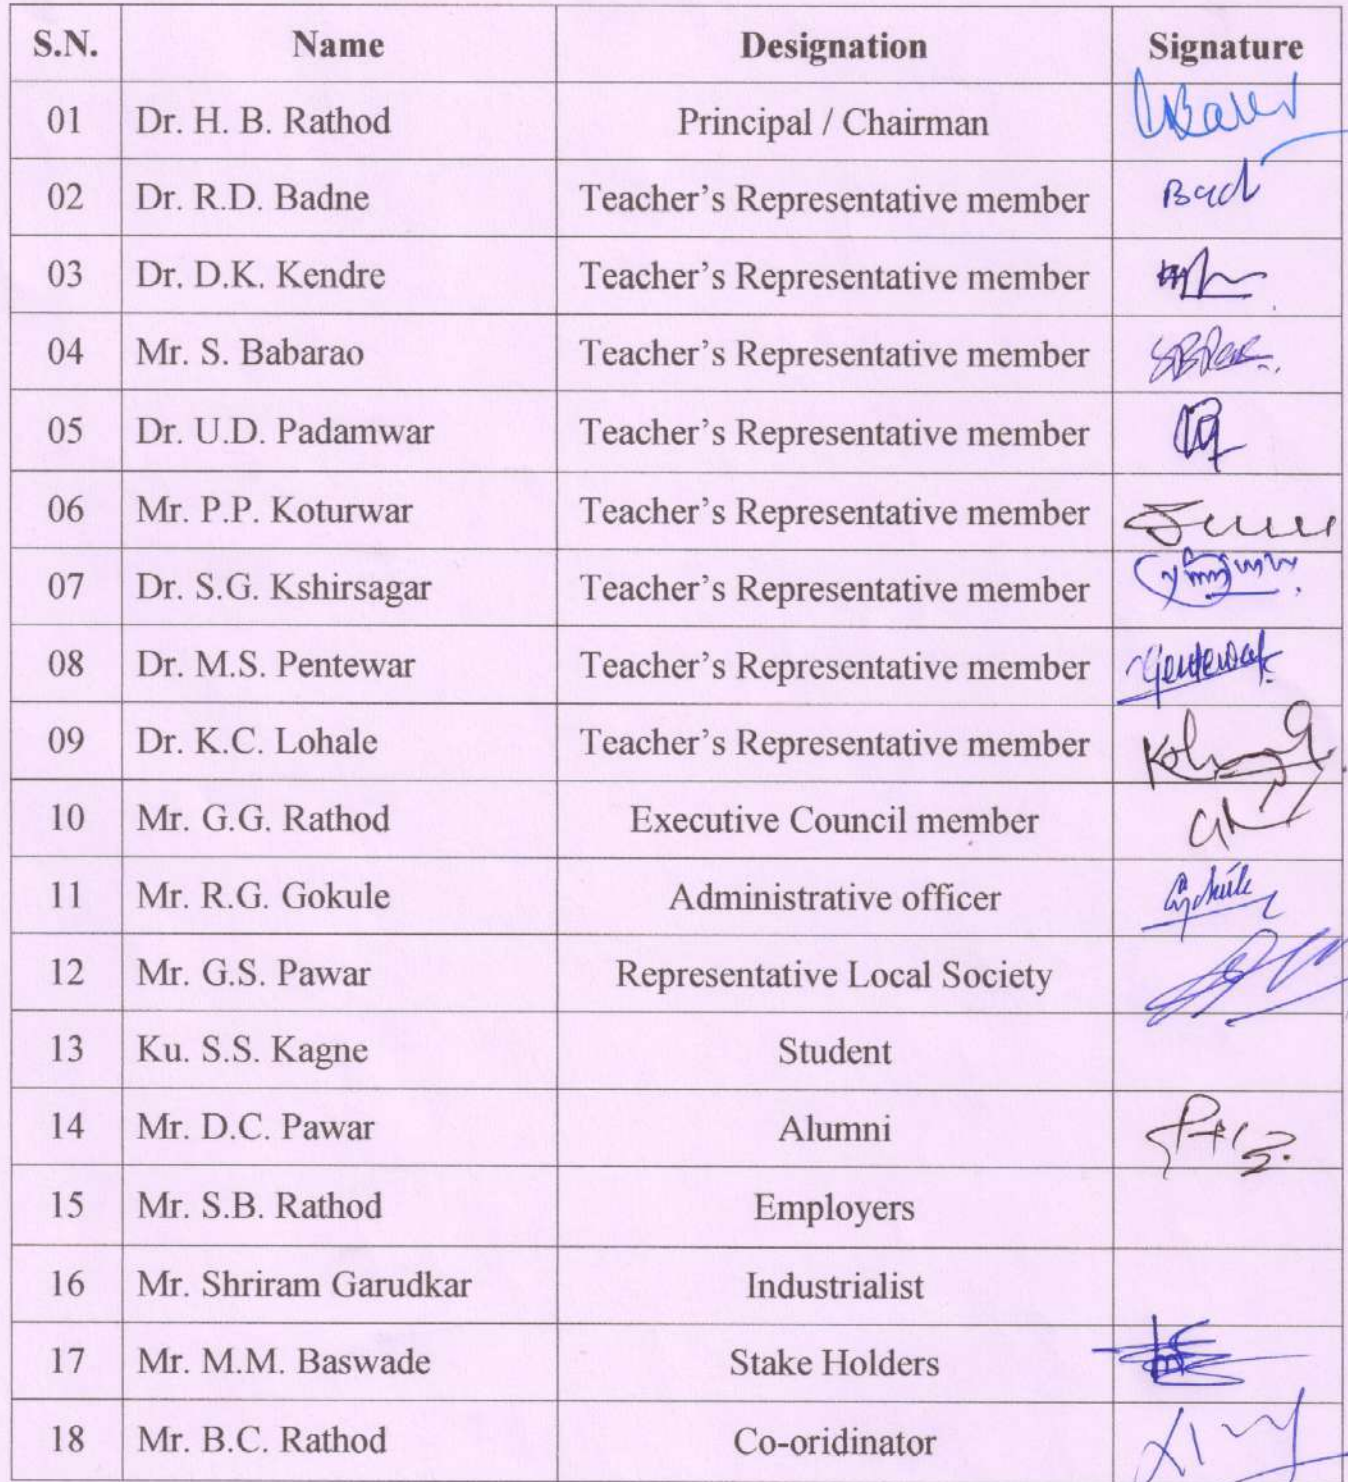 S.N. Name Designation Signature
01 Dr. H. B. Rathod Principal / Chairman
02 Dr. R.D. Badne Teacher’s Representative member
03 Dr. D.K. Kendre Teacher’s Representative member
04 Mr. S. Babarao Teacher’s Representative member
05 Dr. U.D. Padamwar Teacher’s Representative member
06 Mr. P.P. Koturwar Teacher’s Representative member
07 Dr. S.G. Kshirsagar Teacher’s Representative member
08 Dr. M.S. Pentewar Teacher’s Representative member
09 Dr. K.C. Lohale Teacher’s Representative member
10 Mr. G.G. Rathod Executive Council member
11 Mr. R.G. Gokule Administrative officer
12 Mr. G.S. Pawar Representative Local Society
13 Ku. S.S. Kagne Student
14 Mr. D.C. Pawar Alumni
15 Mr. S.B. Rathod Employers
16 Mr. Shriram Garudkar Industrialist
17 Mr. M.M. Baswade Stake Holders
18 Mr. B.C. Rathod Co-oridinator